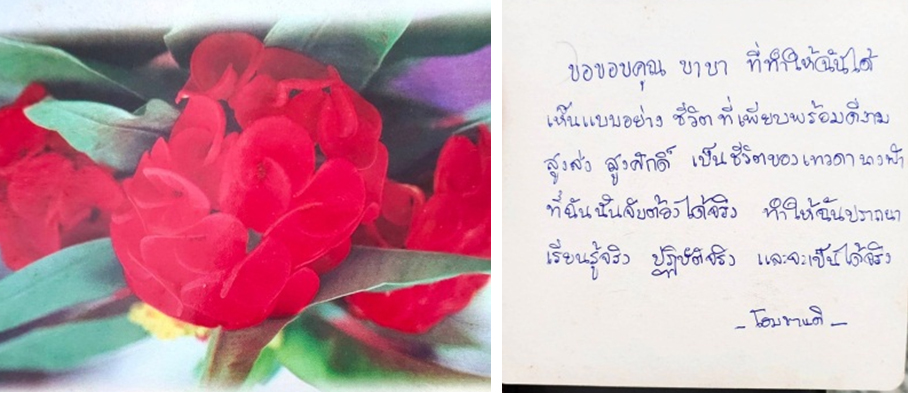 ขอขอบคุณ บาบา ที่ทำให้ฉันได้
เห็นแบบอย่าง ชีวิตที่เพียบพร้อมดีงาม
สูงส่ง สูงศักดิ์ เป็นชีวิตของเทวดานางฟ้า
ที่ฉันนั้นจับต้องได้จริง ทำให้ฉันปรารถนา
เรียนรู้จริง ปฏิบัติจริง และจะเป็นได้จริง
- โอมชานติ -